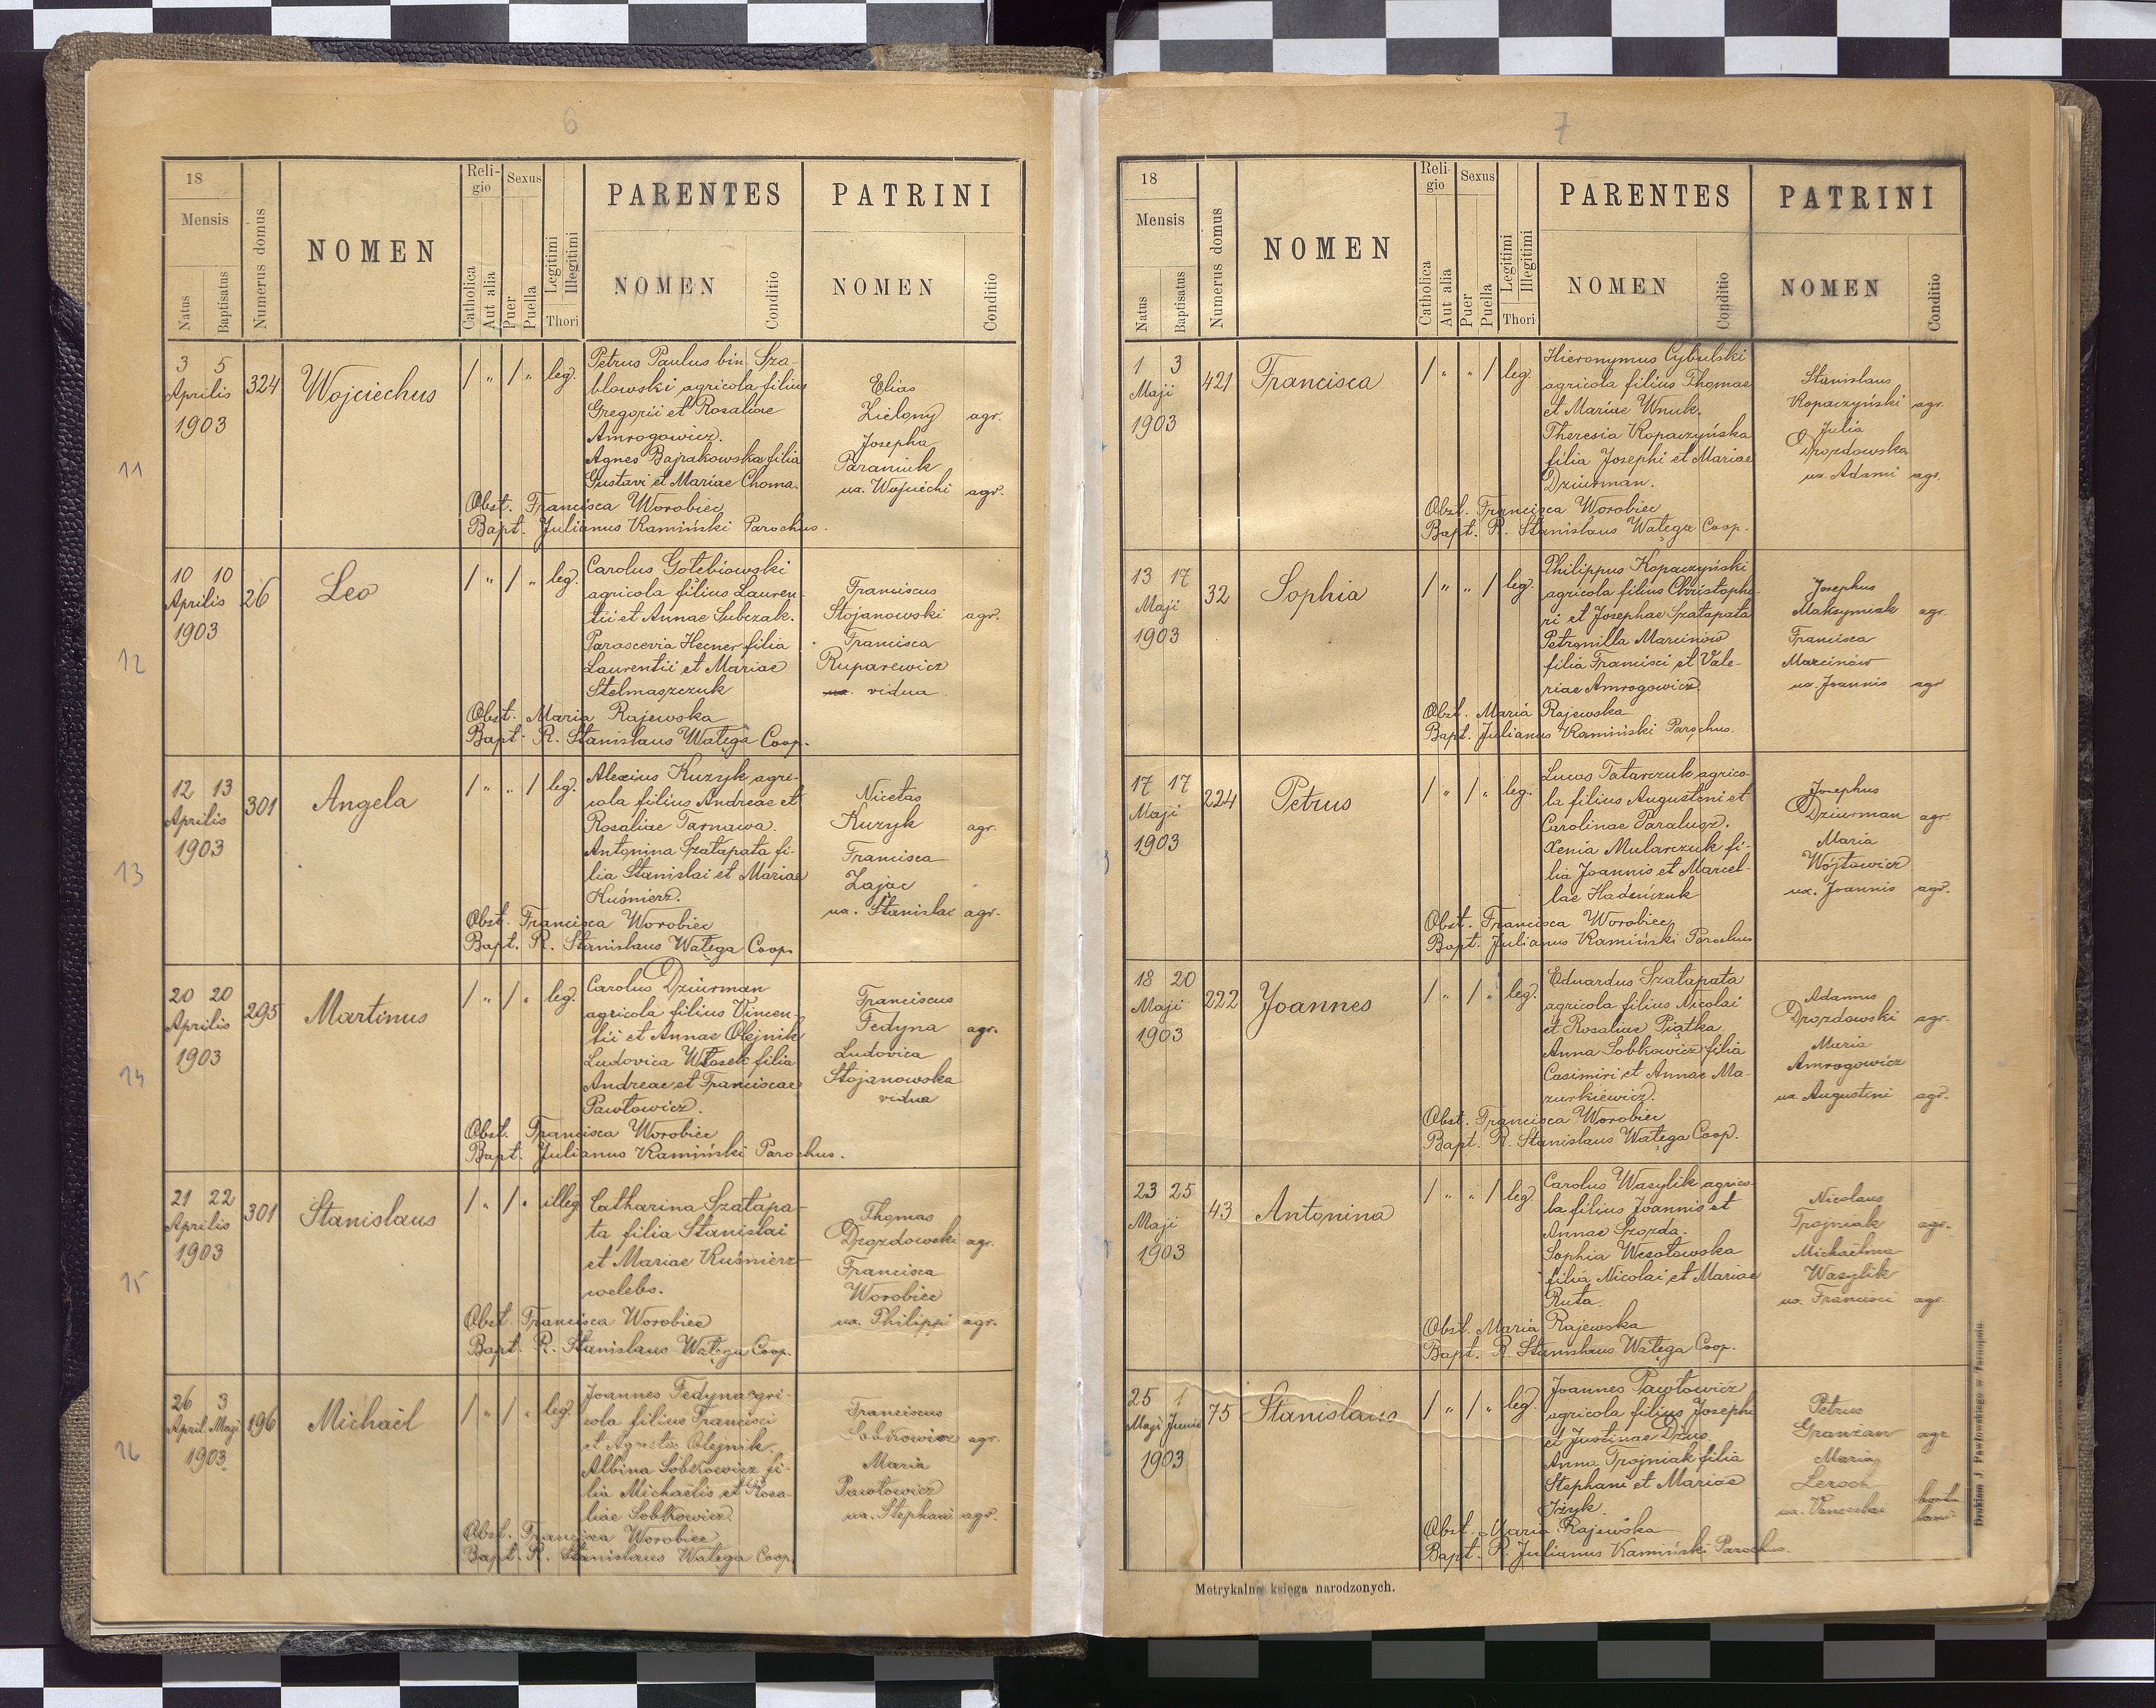 6
18
Mensis
Natus
Baptisatus
Numerus domus
NOMEN
Religio
Catholica
Aut alia
Sexus
Puer
Puella
Legitimi
Illegitimi
Thori
PARENTES
NOMEN
Conditio
PATRINI
NOMEN
Conditio
11
3 5
Aprilis
1903
324
Wojciechus
/ " / " leg.
Petrus Paulus bin. Sza-
blowski agricola filius
Gregorii et Rosaliae
Amrogowicz.
Agnes Bajrakowska filia
Gustavi et Mariae Choma.
Elias
Zielony agr.
Josepha
Paraniuk
ux. Wojciechi agr.
Obst. Francisca Worobiec
Bapt. Julianus Kamiński Parochus.
12
10 10
Aprilis
1903
26
Leo
/ " / " leg.
Carolus Gołebiowski
agricola filius Lauren-
tii et Annae Subczak.
Parascevia Hecner filia
Laurentii et Mariae
Stelmaszczuk
Franciscus
Stojanowski agr.
Francisca
Ruparewicz
ux. vidua
Obst. Maria Rajewska
Bapt. R. Stanislaus Watęga Coop.
13
12 13
Aprilis
1903
301
Angela
/ " " / leg.
Alexius Kuzyk agri-
cola filius Andreae et
Rosaliae Tarnawa.
Antonina Szałapata fi-
lia Stanislai et Mariae
Kuśnierz.
Nicetas
Kuzyk agr.
Francisca
Zając
ux. Stanislai agr.
Obst. Francisca Worobiec
Bapt. R. Stanislaus Watęga Coop.
14
20 20
Aprilis
1903
295
Martinus
/ " / " leg.
Carolus Dziurman
agricola filius Vincen-
tii et Annae Olejnik
Ludovica Włosek filia
Andreae et Franciscae
Pawłowicz.
Franciscus
Fedyna agr.
Ludovica
Stojanowska
vidua
Obst. Francisca Worobiec
Bapt. Julianus Kamiński Parochus.
15
21 22
Aprilis
1903
301
Stanislaus
/ " / " illeg.
Catharina Szałapa-
ta filia Stanislai
et Mariae Kuśnierz
coelebs.
Thomas
Drozdowski agr.
Francisca
Worobiec
ux. Philippi agr.
Obst. Francisca Worobiec
Bapt. R. Stanislaus Watęga Coop.
16
26 3
April. Maji
1903
196
Michaël
/ " / " leg.
Joannes Fedyna agri-
cola filius Francisci
et Agnetis Olejnik.
Albina Sobkowicz fi-
lia Michaëlis et Rosa-
liae Sobkowicz
Franciscus
Sobkowicz agr.
Maria
Pawłowicz
ux. Stephani agr.
Obst. Francisca Worobiec
Bapt. R. Stanislaus Watęga Coop.
7
18
Mensis
Natus
Baptisatus
Numerus domus
NOMEN
Religio
Catholica
Aut alia
Sexus
Puer
Puella
Legitimi
Illegitimi
Thori
PARENTES
NOMEN
Conditio
PATRINI
NOMEN
Conditio
1 3
Maji
1903
421
Francisca
/ " " / leg.
Hieronymus Cybulski
agricola filius Thomae
et Mariae Wnuk.
Theresia Kopaczyńska
filia Josephi et Mariae
Dziurman.
Stanislaus
Kopaczyński agr.
Julia
Drozdowska
ux. Adami agr.
Obst. Francisca Worobiec
Bapt. R. Stanislaus Watęga Coop.
13 17
Maji
1903
32
Sophia
/ " " / leg.
Philippus Kopaczyński
agricola filius Christopho-
ri et Josephae Szałapata
Petronilla Marcinów
filia Francisci et Vale-
riae Amrogowicz.
Josephus
Maksymiak agr.
Francisca
Marcinów
ux. Joannis agr
Obst. Maria Rajewska
Bapt. Julianus Kamiński Parochus.
17 17
Maji
1903
224
Petrus
/ " / " leg.
Lucas Tatarczuk agrico-
la filius Augustini et
Carolinae Paralusz.
Xenia Mularczuk fi-
lia Joannis et Marcel-
lae
Josephus
Dziurman agr.
Maria
Wójtowicz
ux. Joannis agr.
Obst. Francisca Worobiec
Bapt. Julianus Kamiński Parochus
18 20
Maji
1903
222
Joannes
/ " / " leg.
Eduardus Szałapata
agricola filius Nicolai
et Rosaliae Piątka
Anna Sobkowicz filia
Casimiri et Annae Ma-
zurkiewicz.
Adamus
Drozdowski agr.
Maria
Amrogowicz
ux. Augustini agr.
Obst. Francisca Worobiec
Bapt. R. Stanislaus Watęga Coop.
23 25
Maji
1903
43
Antonina
/ " " / leg.
Carolus Wasylik agrico-
la filius Joannis et
Annae Szozda.
Sophia Wesołowska
filia Nicolai et Mariae
Ruta.
Nicolaus
Trojniak agr.
Michaëlina
Wasylik
ux. Francisci agr.
Obst. Maria Rajewska
Bapt. R. Stanislaus Watęga Coop.
25 1
Maji Junii
1903
75
Stanislaus
/ " / " leg.
Joannes Pawłowicz
agricola filius Josephi
et Justinae Dżus.
Anna Trojniak filia
Stephani et Mariae
Iżyk.
Petrus
Granzan agr
Maria
Leroch
ux.
Obst. Maria Rajewska
Bapt. R. Julianus Kamiński Parochus.
Metrykalna księga narodzonych.
Drukiem J. Pawłowskiego w Tarnopolu